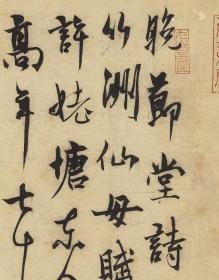 晚節堂詩
竹洲仙母賦
許姥塘東
高年七十